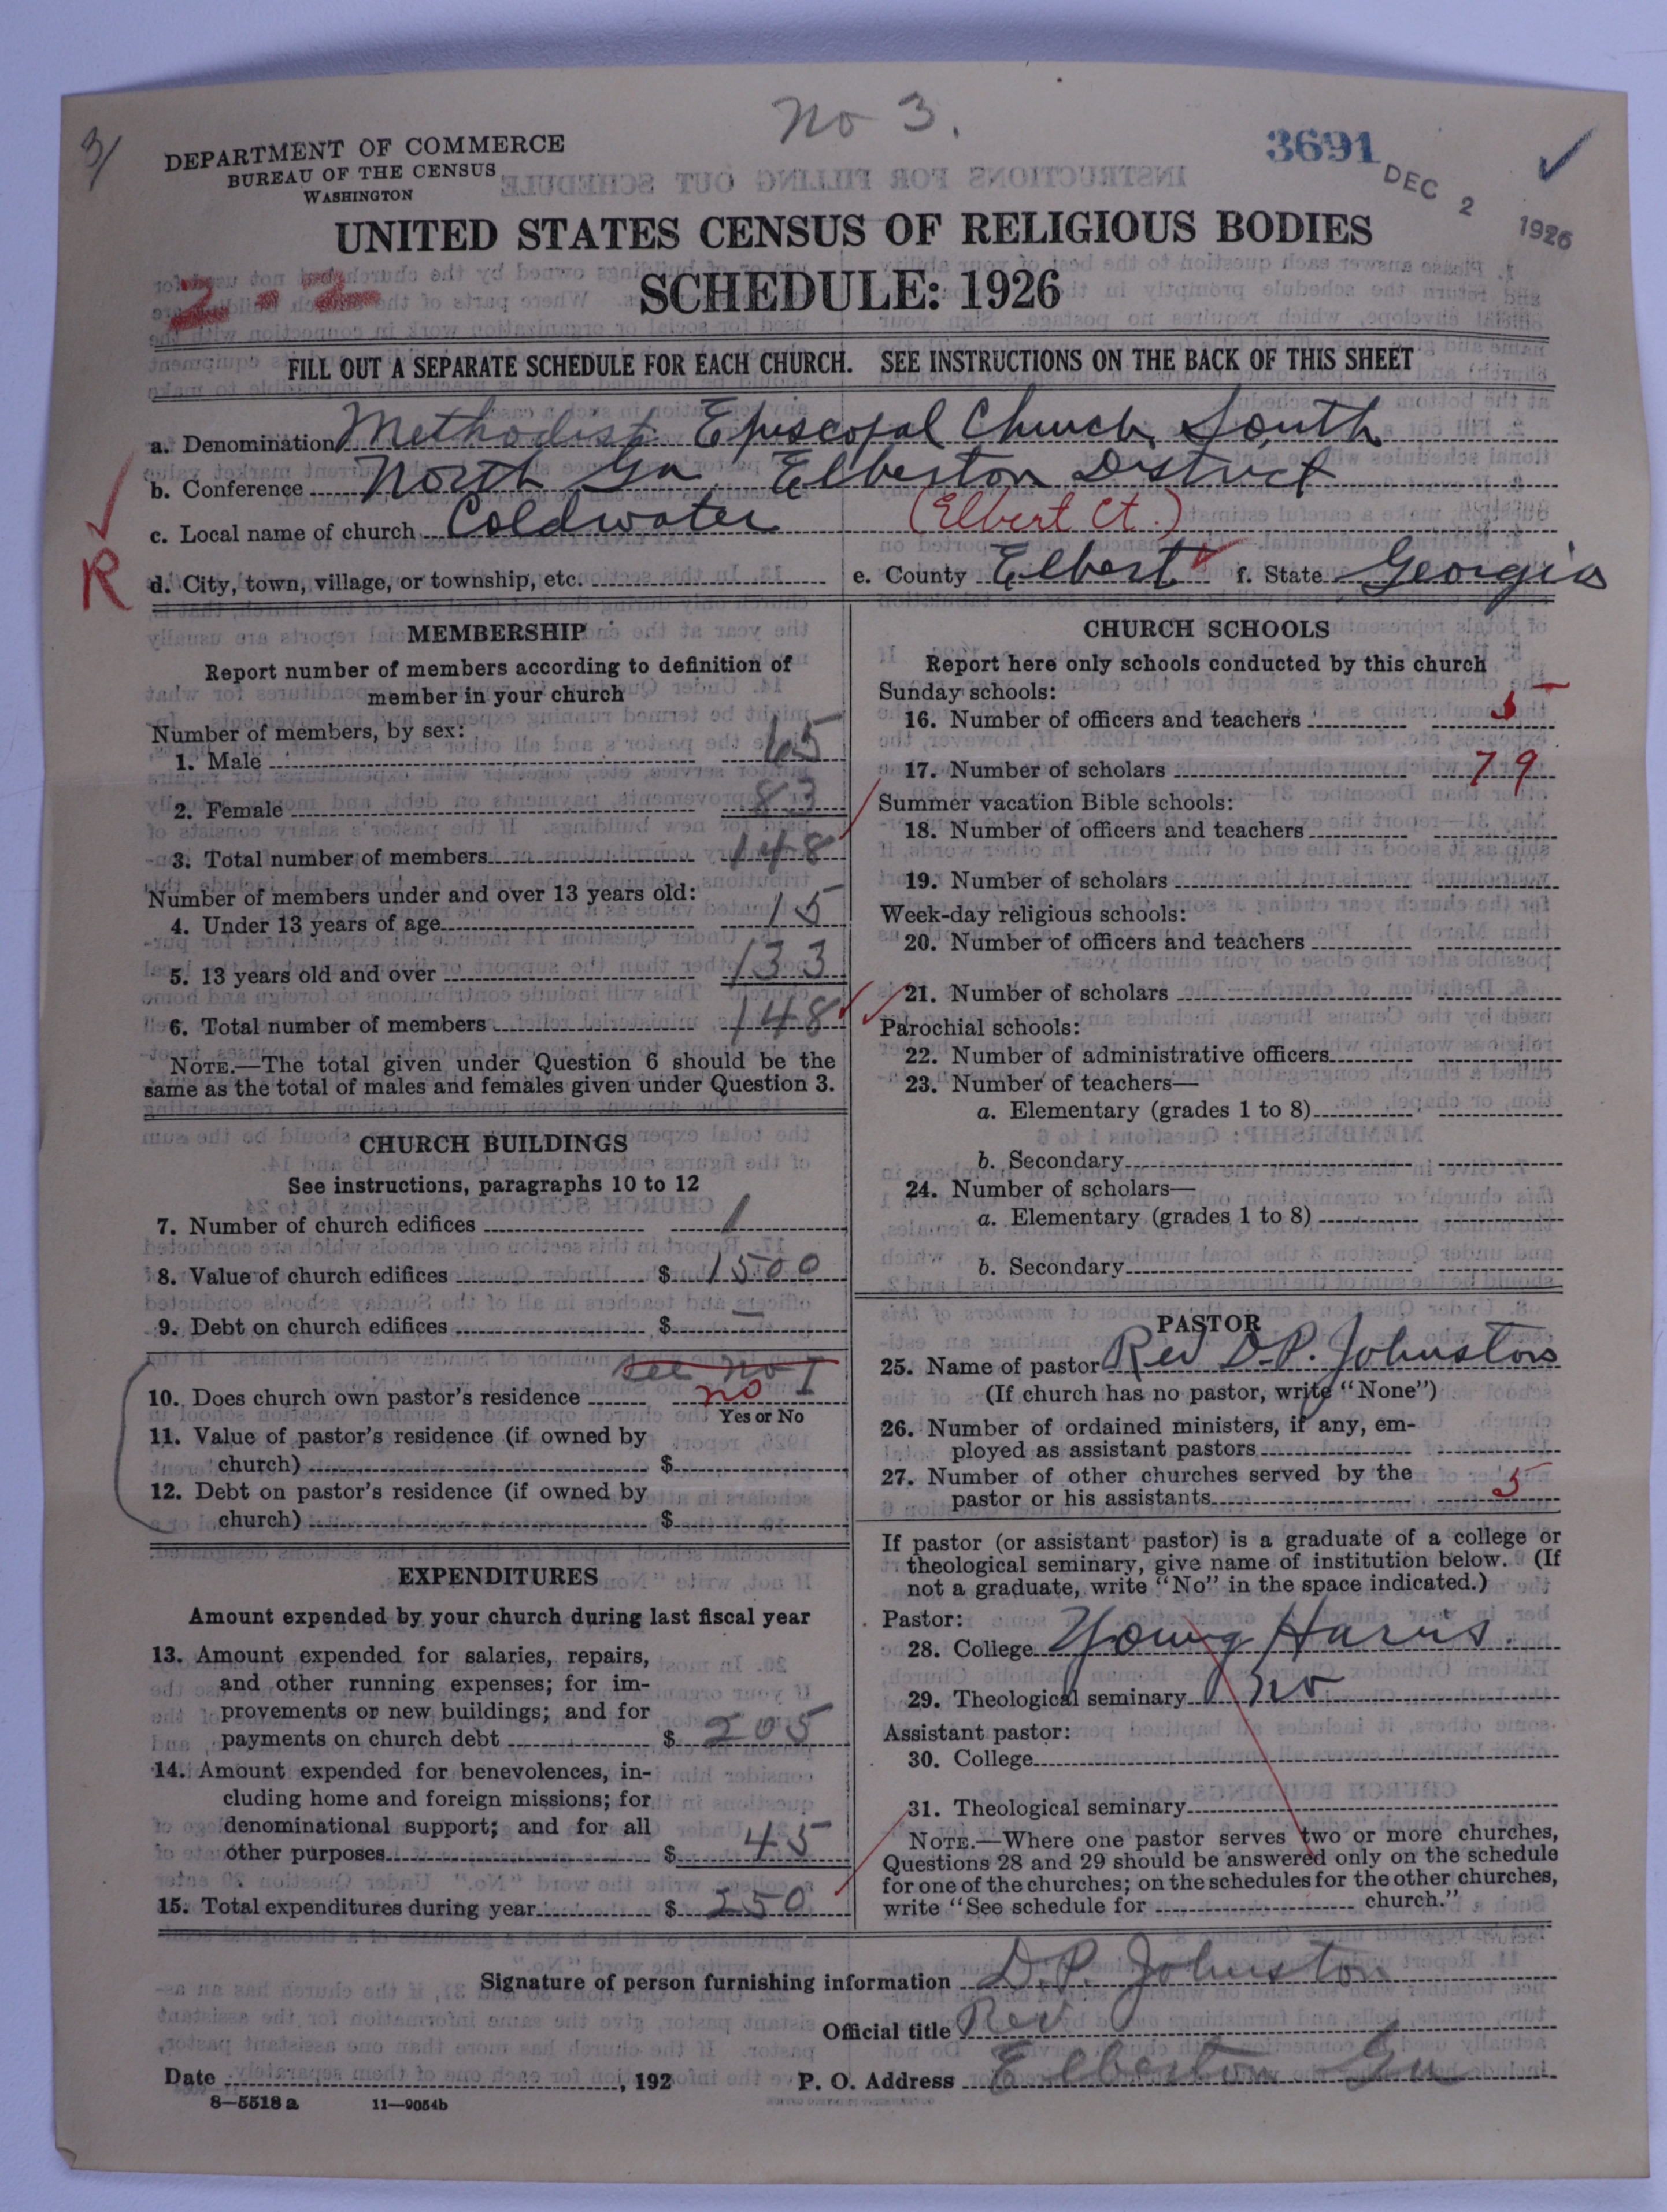 no 3.
3/
DEPARTMENT OF COMMERCE
BUREAU OF THE CENSUS
WASHINGTON
3691
DEC 2 1926
UNITED STATES CENSUS OF RELIGIOUS BODIES
2-2
SCHEDULE: 1926
FILL OUT A SEPARATE SCHEDULE FOR EACH CHURCH. SEE INSTRUCTIONS ON THE BACK OF THIS SHEET
a. Denomination Methodist Episcopal Church, South
b. Conference North Ga. Elberton District
c. Local name of church Coldwater (Elbert Ct.)
R
d. City, town, village, or township, etc. e. County Elbert f. State Georgia
MEMBERSHIP
Report number of members according to definition of
member in your church
Number of members, by sex:
1. Male 65
2. Female 83
3. Total number of members 148
Number of members under and over 13 years old:
4. Under 13 years of age 15
5. 13 years old and over 133
6. Total number of members 148
NOTE.—The total given under Question 6 should be the
same as the total of males and females given under Question 3.
CHURCH BUILDINGS
See instructions, paragraphs 10 to 12
7. Number of church edifices 1
8. Value of church edifices $ 1500
9. Debt on church edifices $ —
see no I
10. Does church own pastor's residence no
Yes or No
11. Value of pastor's residence (if owned by
church) $
12. Debt on pastor's residence (if owned by
church) $
EXPENDITURES
Amount expended by your church during last fiscal year
13. Amount expended for salaries, repairs,
and other running expenses; for im-
provements or new buildings; and for
payments on church debt $ 205
14. Amount expended for benevolences, in-
cluding home and foreign missions; for
denominational support; and for all
other purposes $ 45
15. Total expenditures during year $ 250
CHURCH SCHOOLS
Report here only schools conducted by this church
Sunday schools:
16. Number of officers and teachers 5
17. Number of scholars 79
Summer vacation Bible schools:
18. Number of officers and teachers
19. Number of scholars
Week-day religious schools:
20. Number of officers and teachers
21. Number of scholars
Parochial schools:
22. Number of administrative officers
23. Number of teachers—
a. Elementary (grades 1 to 8)
b. Secondary
24. Number of scholars—
a. Elementary (grades 1 to 8)
b. Secondary
PASTOR
25. Name of pastor Rev D.P. Johnston
(If church has no pastor, write "None")
26. Number of ordained ministers, if any, em-
ployed as assistant pastors
27. Number of other churches served by the
pastor or his assistants 5
If pastor (or assistant pastor) is a graduate of a college or
theological seminary, give name of institution below. (If
not a graduate, write "No" in the space indicated.)
Pastor:
28. College Young Harris.
29. Theological seminary No
Assistant pastor:
30. College
31. Theological seminary
NOTE.—Where one pastor serves two or more churches,
Questions 28 and 29 should be answered only on the schedule
for one of the churches; on the schedules for the other churches,
write "See schedule for church."
Signature of person furnishing information D.P. Johnston
Official title Rev
Date , 192 P. O. Address Elberton Ga
8—5518 a 11—9054b